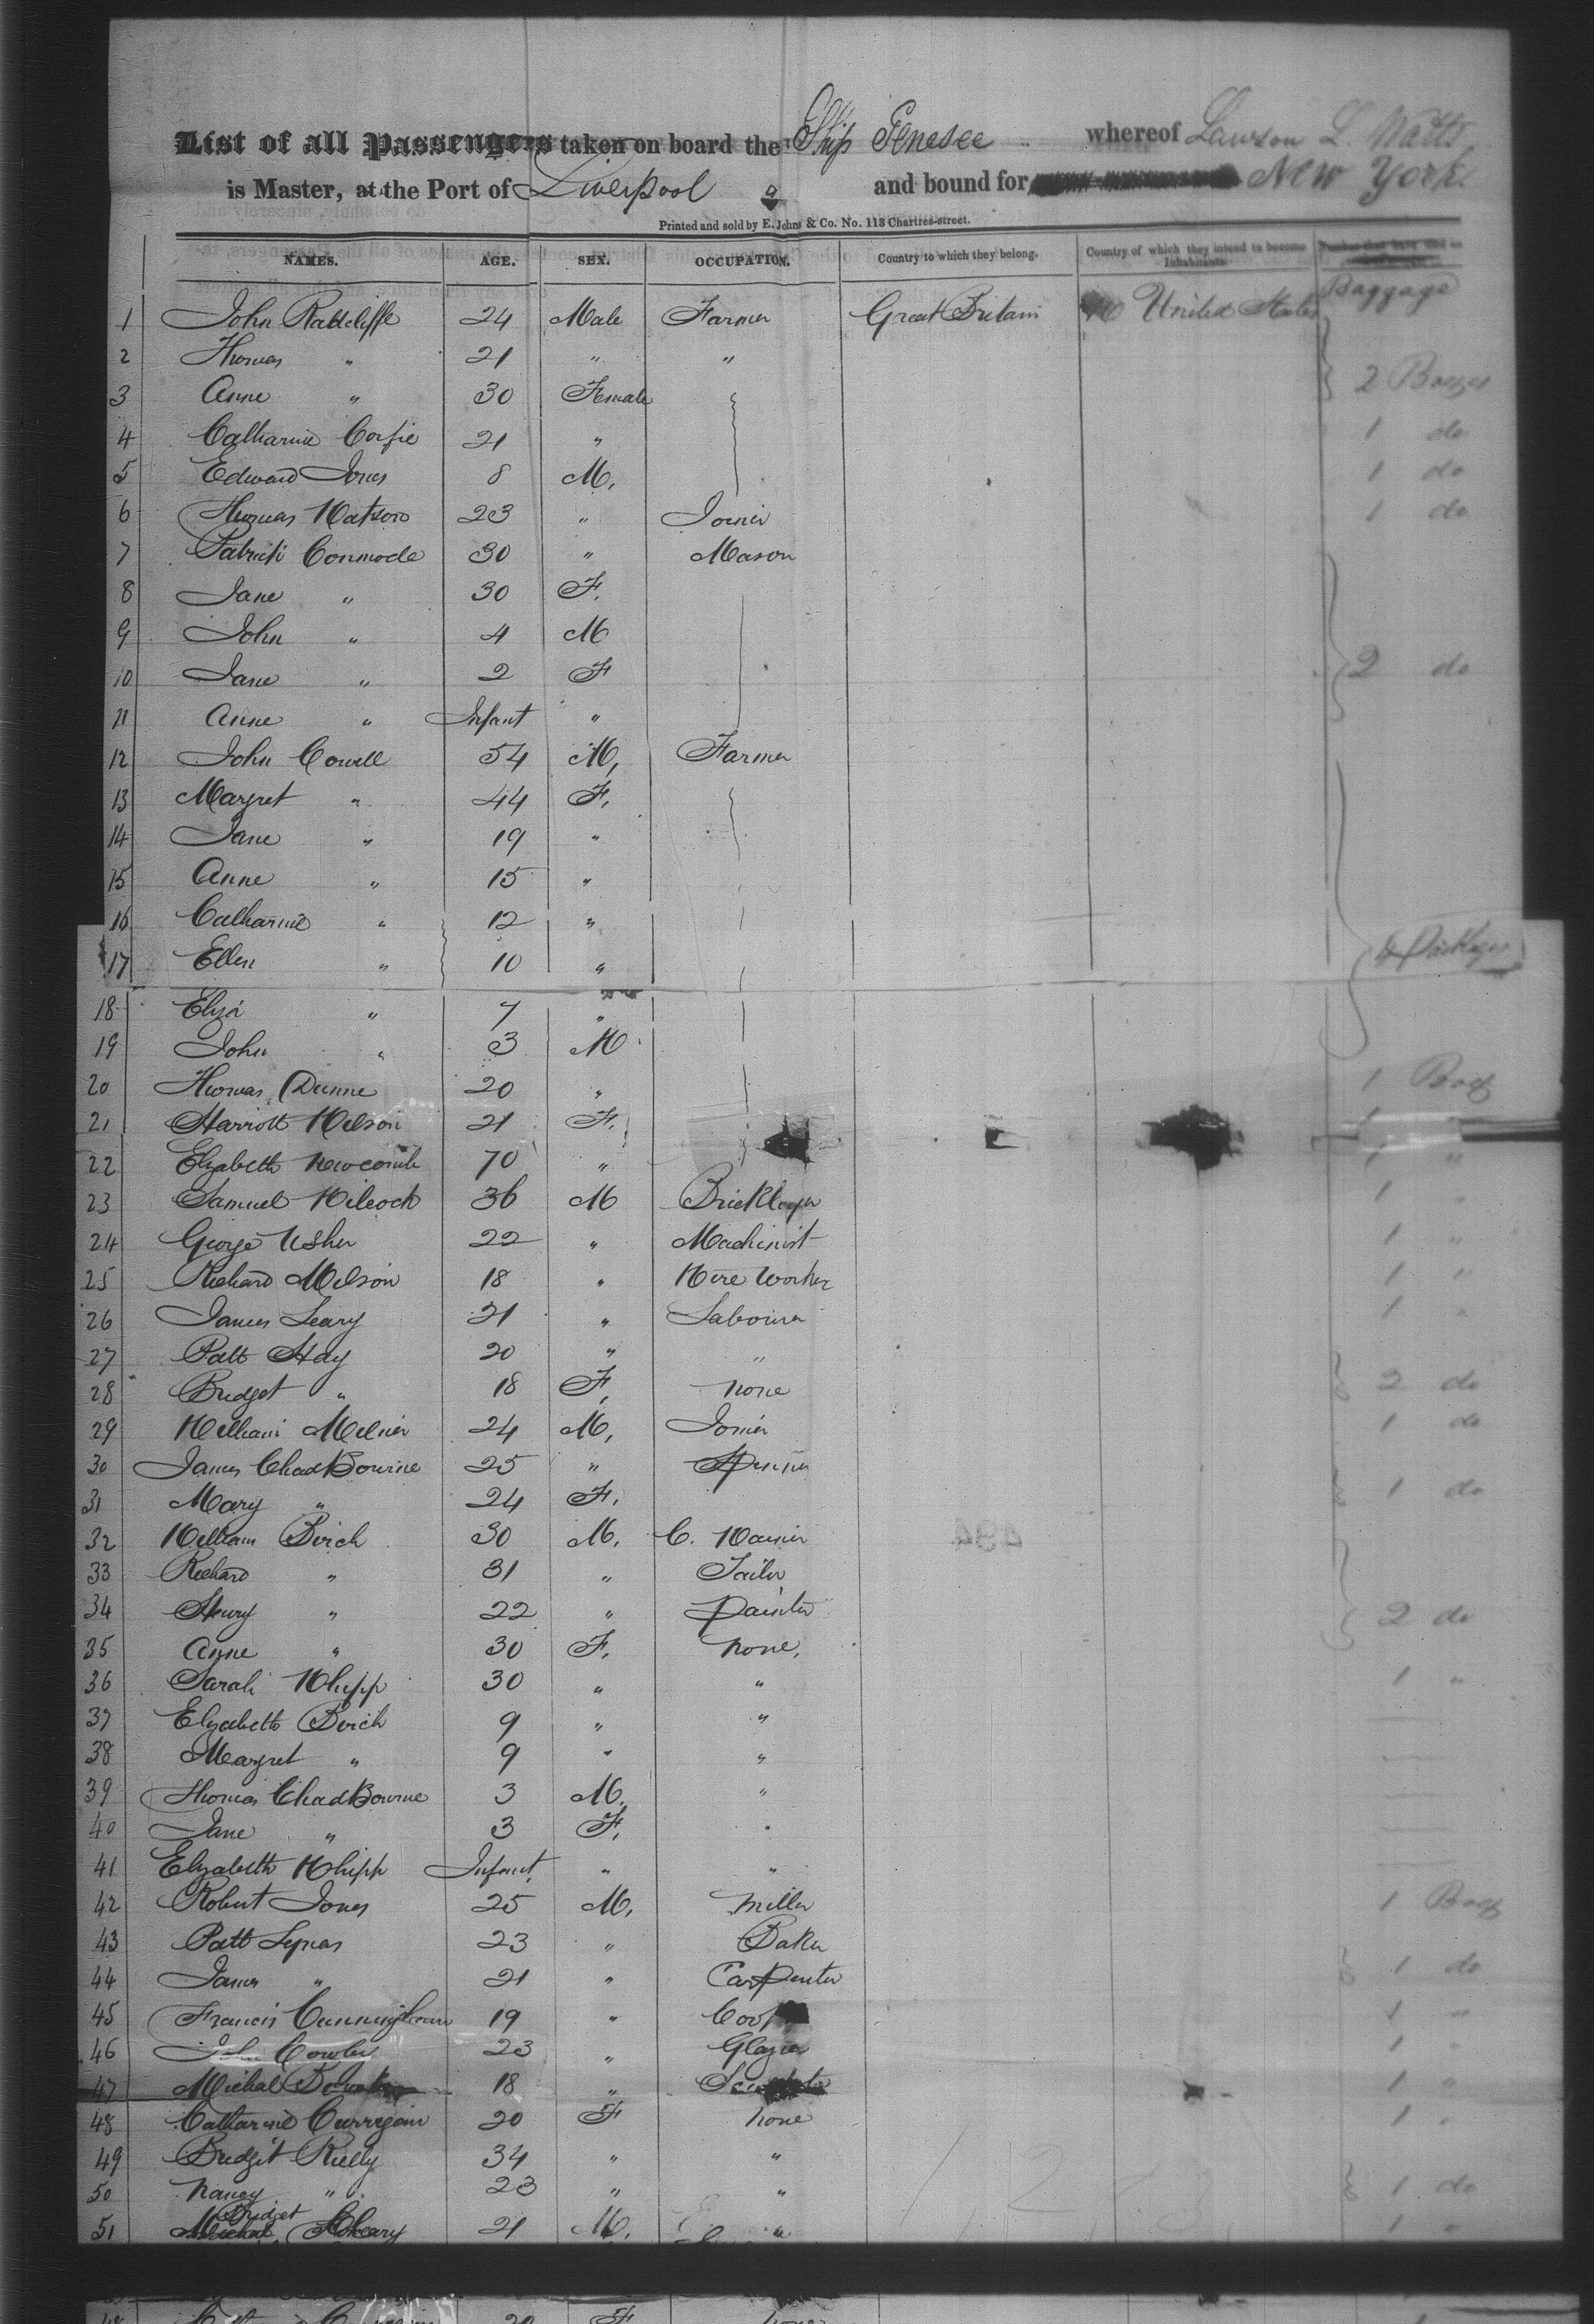 List of all Passengers taken on board the Ship Genesee whereof Lawson L. Watts
is Master, at the Port of Liverpool and bound for New York.
Printed and sold by E. Johns & Co. No. 113 Chartres-street.
NAMES. AGE. SEX. OCCUPATION. Country to which they belong. Country of which they intend to become Inhabitants.
Baggage
1 John Radcliffe 24 Male Farmer Great Britain United States
2 Thomas " 21 " "
3 Anne " 30 Female 2 Boxes
4 Catharine 21 " 1 do
5 Edward Jones 8 M. 1 do
6 Thomas Watson 23 " Joiner 1 do
7 Patrick Conmode 30 " Mason
8 Jane " 30 F.
9 John " 4 M
10 Jane " 2 F 2 do
11 Anne " Infant "
12 John Cowell 54 M, Farmer
13 Margret " 44 F,
14 Jane " 19 "
15 Anne " 15 "
16 Catharine " 12 "
17 Ellen " 10 " 4 Packages
18 Eliza " 7 "
19 John " 3 M
20 Thomas Dunne 20 " 1 Box
21 Harriott Wilson 21 F. 1
22 Elizabeth Newcomb 70 " 1 "
23 Samuel Wilcock 36 M Bricklayer 1 "
24 George Usher 22 " Machinist 1 "
25 Richard Milson 18 " Wire Worker 1 "
26 James Leary 21 " Labourer 1 "
27 Patt Hay 20 " "
28 Bridget " 18 F, none 2 do
29 William Milner 24 M, Joiner 1 do
30 James ChadBourne 25 " Spinner
31 Mary " 24 F. 1 do
32 William Birch 30 M. C.
33 Richard " 31 " Tailor
34 Henry " 22 " Painter 2 do
35 Anne " 30 F. none.
36 Sarah Whipp 30 " " 1 "
37 Elizabeth Birch 9 " "
38 Margret " 9 " "
39 Thomas ChadBourne 3 M. "
40 Jane " 3 F. "
41 Elizabeth Whipp Infant. " "
42 Robert Jones 25 M, Miller 1 Box
43 Patt Lynas 23 " Baker
44 James " 21 " Carpenter 1 do
45 Francis Cunningham 19 " 1 "
46 John Cowler 23 " Glazier 1 "
47 Michal 18 " 1 "
48 Catharine Currigain 20 F none 1 "
49 Bridgit Rielly 34 " "
50 Nancy " 23 " " 1 do
Bridget
51 21 M. " 1 "
48 20 F none